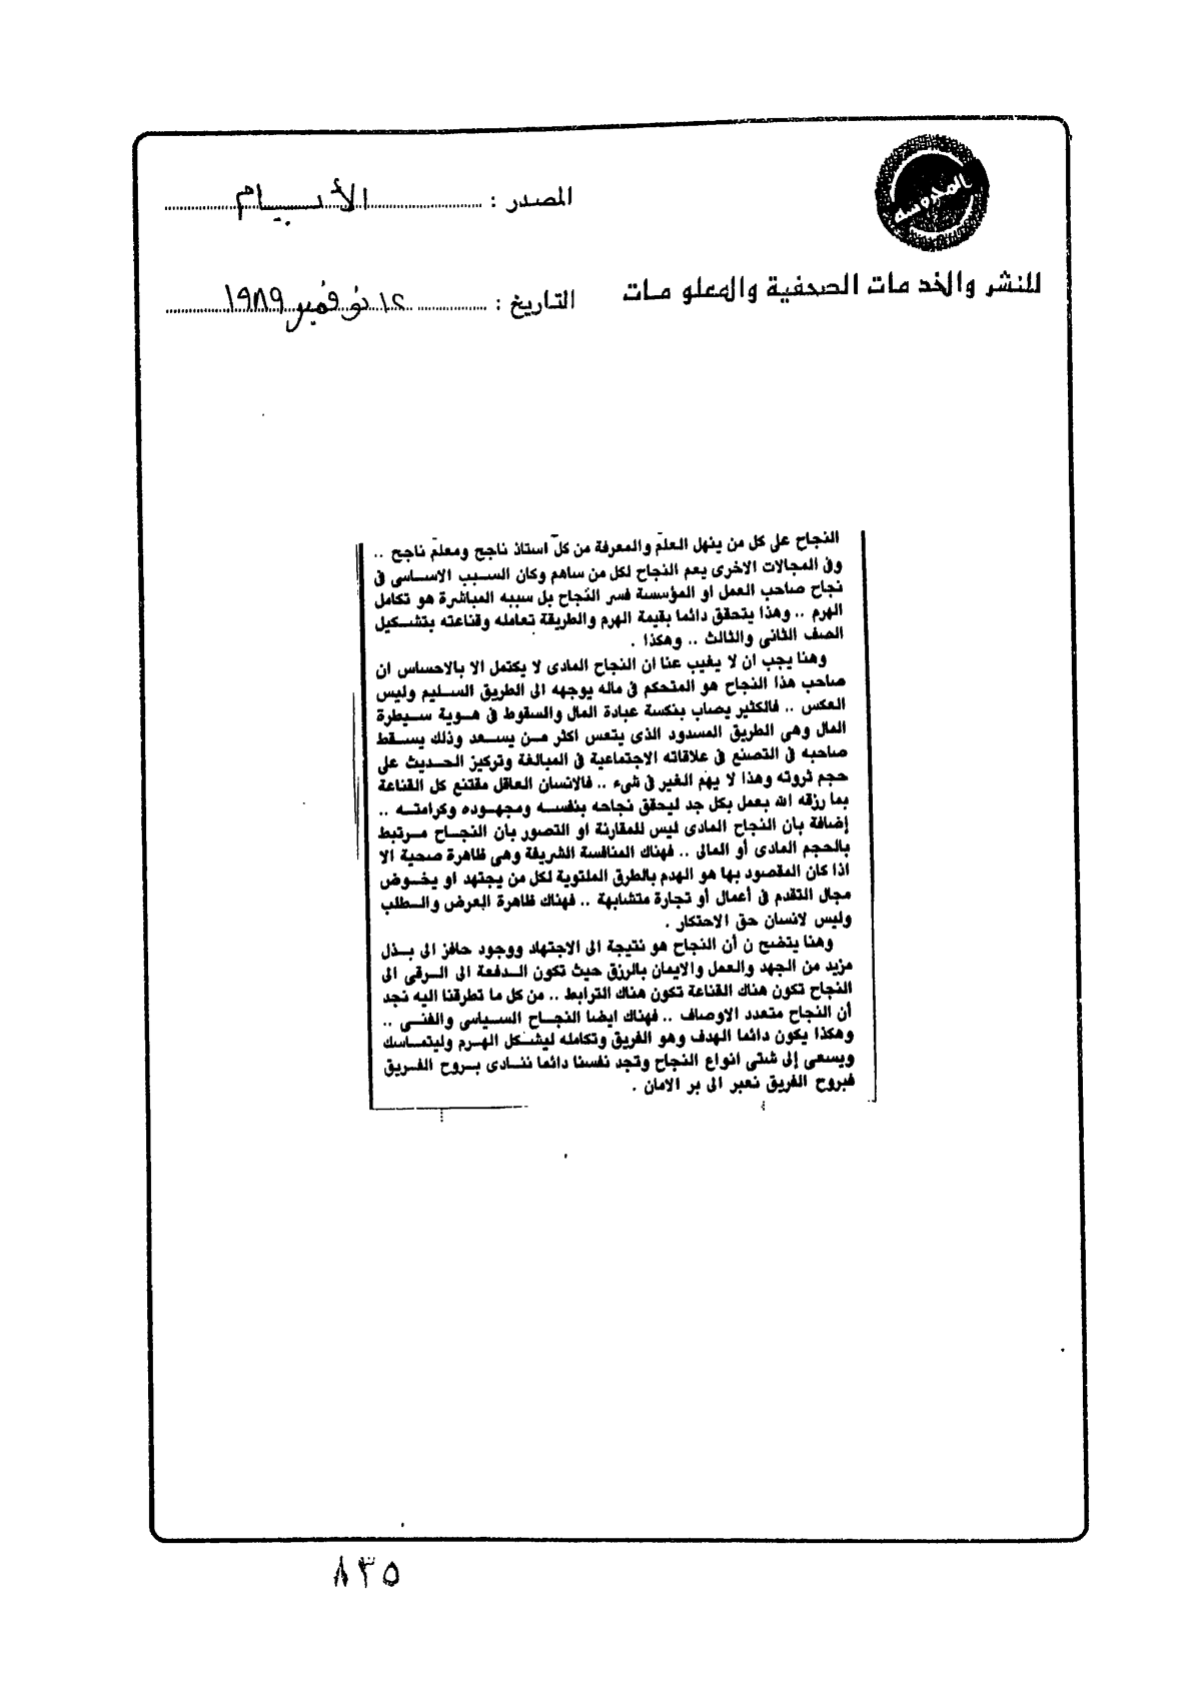 المحروسه
للنشر والخدمات الصحفية والمعلومات
المصدر : الأيام
التاريخ : ١٢ نوفمبر ١٩٨٩
النجاح على كل من ينهل العلم والمعرفة من كل استاذ ناجح ومعلم ناجح ..
وفى المجالات الاخرى يعم النجاح لكل من ساهم وكان السبب الاساسى فى
نجاح صاحب العمل او المؤسسة فسر النجاح بل سببه المباشرة هو تكامل
الهرم .. وهذا يتحقق دائما بقيمة الهرم والطريقة تعامله وقناعته بتشكيل
الصف الثانى والثالث .. وهكذا .
وهنا يجب ان لا يغيب عنا ان النجاح المادى لا يكتمل الا بالاحساس ان
صاحب هذا النجاح هو المتحكم فى ماله يوجهه الى الطريق السليم وليس
العكس .. فالكثير يصاب بنكسة عبادة المال والسقوط فى هوية سيطرة
المال وهى الطريق المسدود الذى يتعس اكثر من يسعد وذلك يسقط
صاحبه فى التصنع فى علاقاته الاجتماعية فى المبالغة وتركيز الحديث على
حجم ثروته وهذا لا يهم الغير فى شىء .. فالانسان العاقل مقتنع كل القناعة
بما رزقه الله يعمل بكل جد ليحقق نجاحه بنفسه ومجهوده وكرامته ..
إضافة بان النجاح المادى ليس للمقارنة او التصور بان النجاح مرتبط
بالحجم المادى أو المالى .. فهناك المنافسة الشريفة وهى ظاهرة صحية الا
اذا كان المقصود بها هو الهدم بالطرق الملتوية لكل من يجتهد او يخوض
مجال التقدم فى أعمال أو تجارة متشابهة .. فهناك ظاهرة العرض والطلب
وليس لانسان حق الاحتكار .
وهنا يتضح ن أن النجاح هو نتيجة الى الاجتهاد ووجود حافز الى بذل
مزيد من الجهد والعمل والايمان بالرزق حيث تكون الدفعة الى الرقى الى
النجاح تكون هناك القناعة تكون هناك الترابط .. من كل ما تطرقنا اليه نجد
أن النجاح متعدد الاوصاف .. فهناك ايضا النجاح السياسى والفنى ..
وهكذا يكون دائما الهدف وهو الفريق وتكامله ليشكل الهرم وليتماسك
ويسعى إلى شتى انواع النجاح وتجد نفسنا دائما ننادى بروح الفريق
فبروح الفريق نعبر الى بر الامان .
٨٣٥